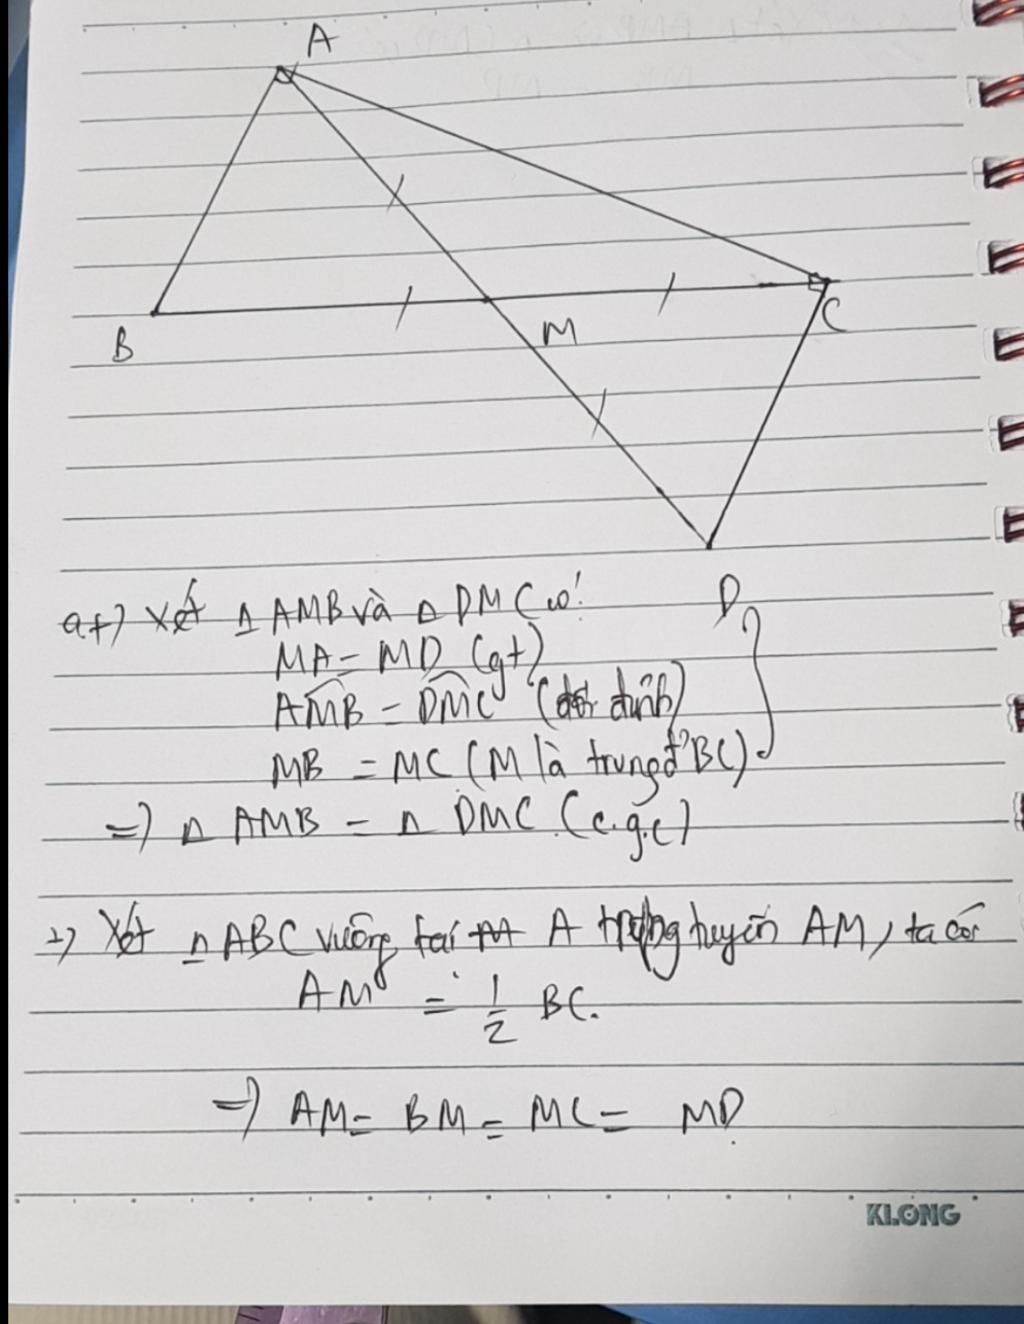 A
B
M
C
D
a+) Xét △ AMB và △ DMC có:
MA = MD (gt)
AMB = DMC (đối đỉnh)
MB = MC (M là trung đ' BC)
=> △ AMB = △ DMC (c.g.c)
+) Xét △ ABC vuông tại A trung tuyến AM, ta có:
AM = 1/2 BC.
=> AM = BM = MC = MD
KLONG